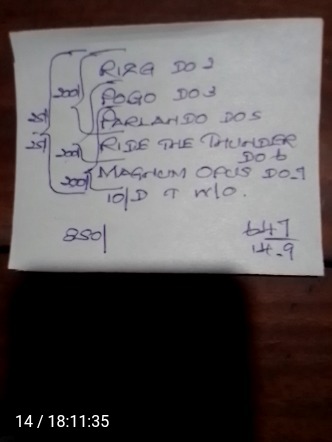 RIZA DO 2
200/ POGO DO 3
PARLANDO DO 5
25/
25/ 200/ RIDE THE THUNDER
DO 6
200/ MAGNUM OPUS DO 7
10/D T W/O.
850/ 647
14.9
14 / 18:11:35